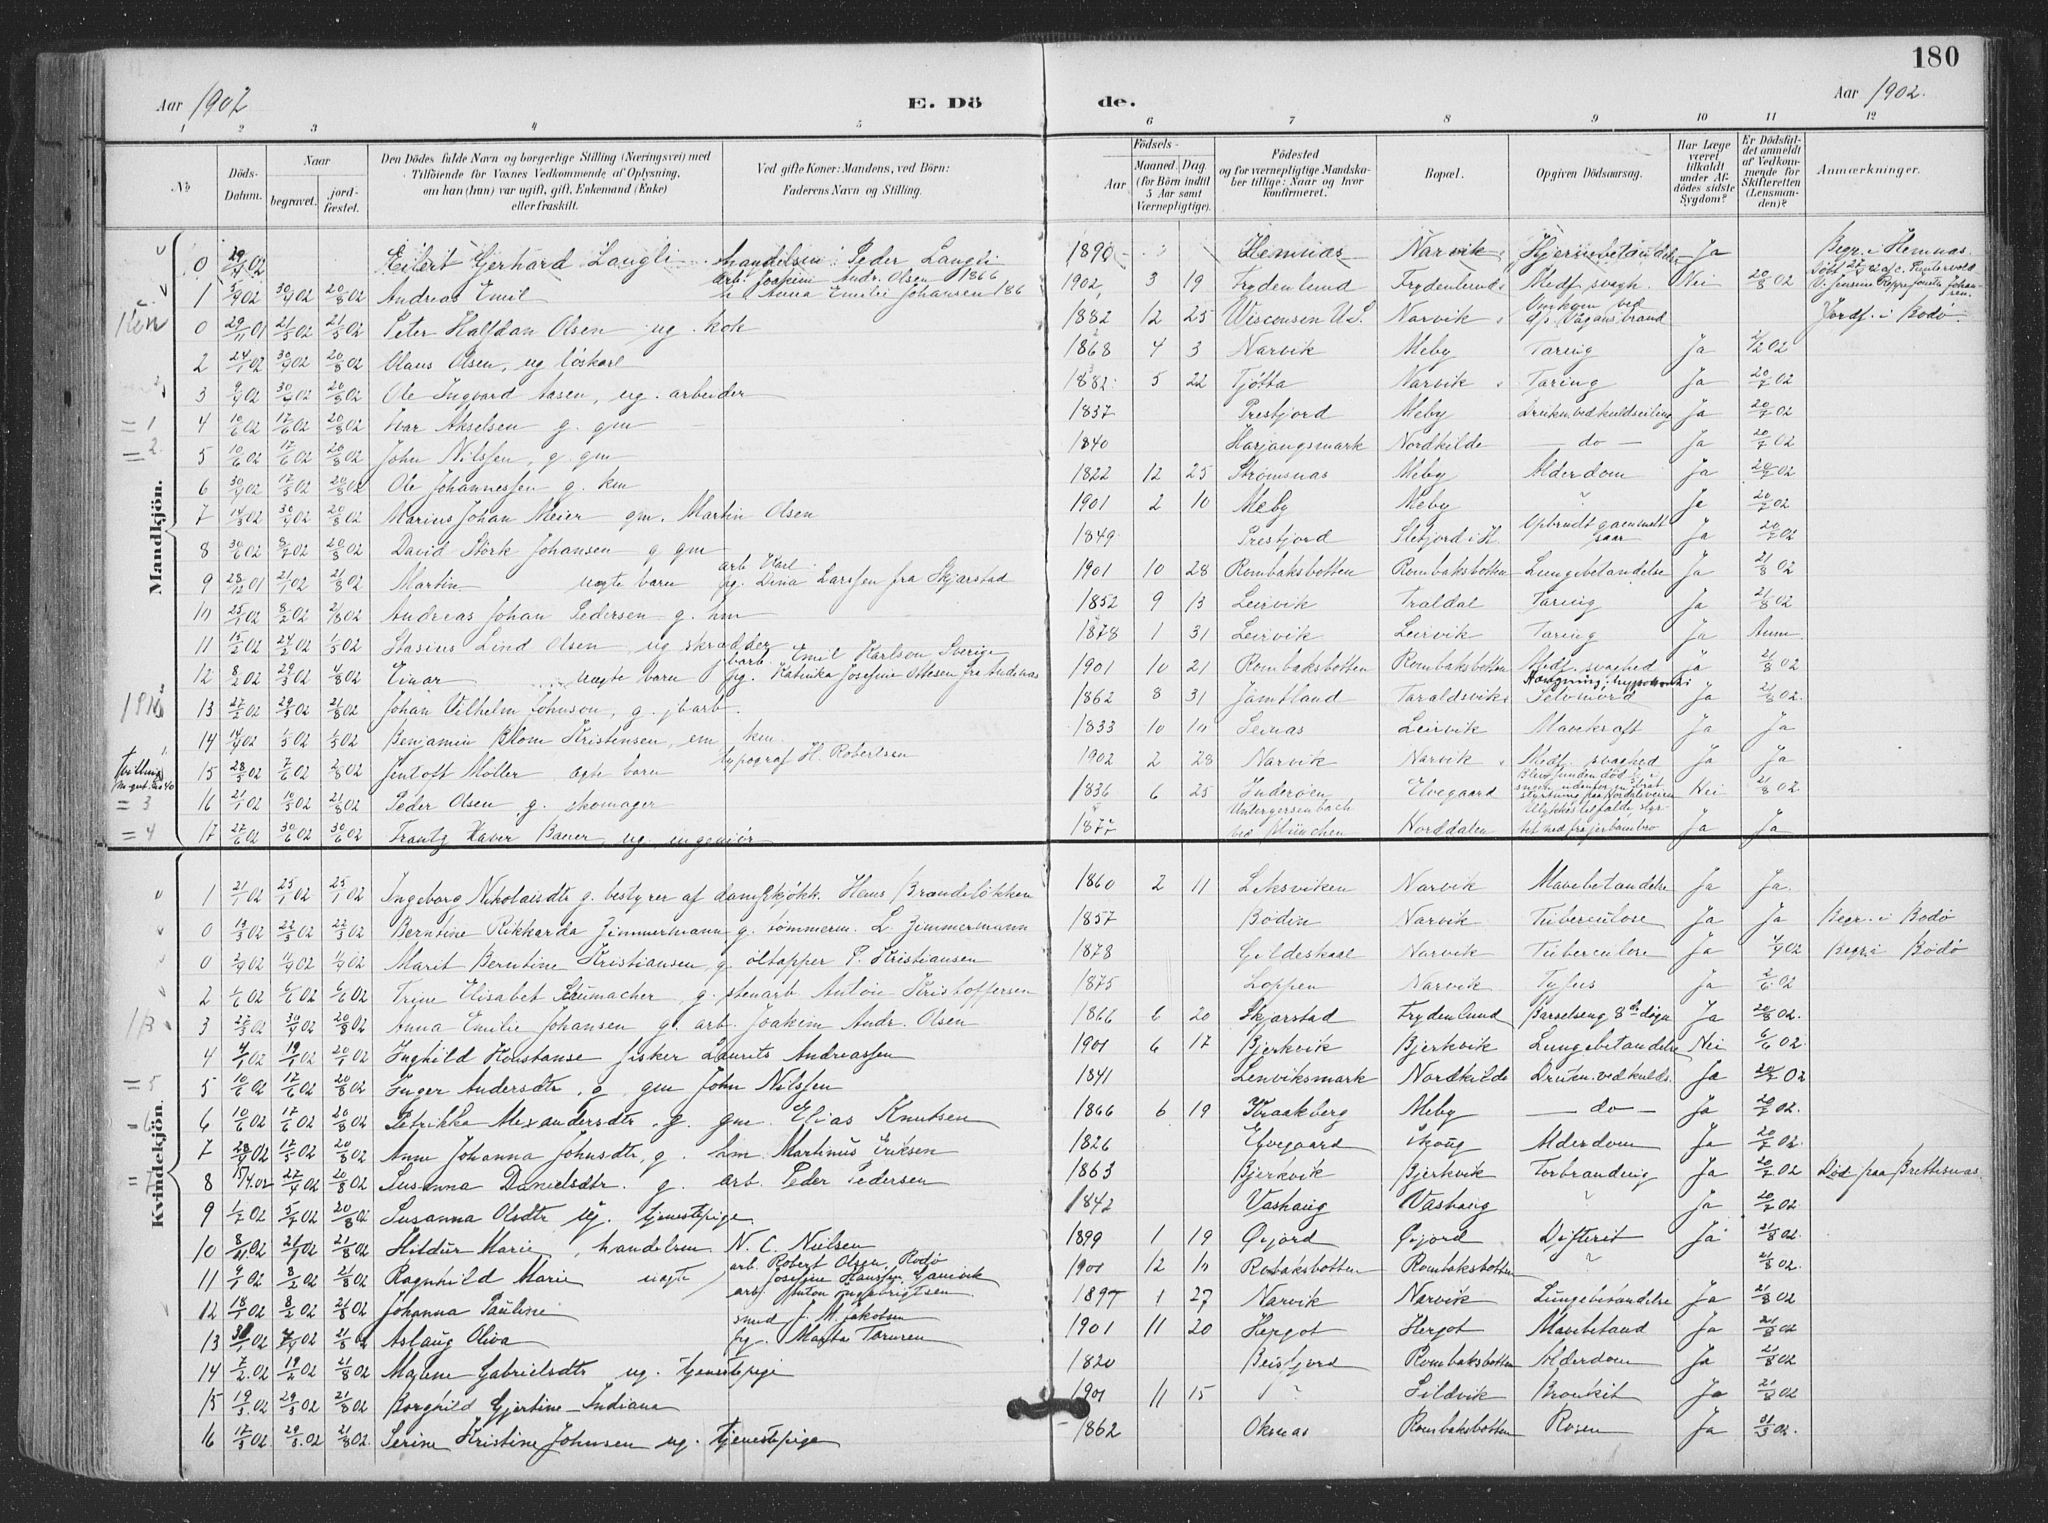 180
Aar 1902
E. Dö de.
Aar 1902.
1 2 3 4 5 6 7 8 9 10 11 12
No
Döds-Datum.
Naar
begravet.
jord-fæstet.
Den Dödes fulde Navn og borgerlige Stilling (Næringsvei) med
Tilföiende for Voxnes Vedkommende af Oplysning,
om han (hun) var ugift, gift, Enkemand (Enke)
eller fraskilt.
Ved gifte Koner: Mandens, ved Börn:
Faderens Navn og Stilling.
Födsels-
Aar
Maaned. Dag.
(for Börn indtil
5 Aar samt
Værnepligtige).
Födested
og for værnepligtige Mandska-
ber tillige: Naar og hvor
konfirmeret.
Bopæl.
Opgiven Dödsaarsag.
Har Læge
været
tilkaldt
under Af-
dödes sidste
Sygdom?
Er Dödsfal-
det anmeldt
af Vedkom-
mende for
Skifteretten
(Lensman-
den)?
Anmærkninger.
Mandkjön.
0 29/4 02 Eilert Gerhard Langli handelsm. Peder Langli 1890 Hemnæs Narvik Hjernebetændelse Ja Begr. i Hemnæs
1 3/4 02 30/4 02 20/8 02 Andreas Emil arb. Joakim Andr. Olsen 1866 h Anna Emilie Johansen 186 1902 3 19 Frydenlund Frydenlund Medf. svagh. Nei 20/8 02
0 29/11 01 21/5 02 21/5 02 Peter Halfdan Olsen ug. kok 1882 12 25 Wisconsen U.S. Narvik Omkom ved d/s Vågans brand Jordf. i Bodø
2 24/1 02 30/4 02 20/8 02 Olaus Olsen, ug løskarl 1868 4 3 Narvik Meby Tæring Ja 2/2 02
3 9/4 02 30/4 02 20/8 02 Ole Ingvard Aasen, ug. arbeider 1882 5 22 Tjøtta Narvik Tæring Ja 20/7 02
4 10/6 02 17/6 02 20/8 02 Ivar Akselsen g. gm 1837 Prestjord Meby Drukn. ved kuldseiling Ja 20/7 02
5 10/6 02 17/6 02 20/8 02 John Nilssen, g. gm 1840 Harjangsmark Nordkilde — do — Ja 20/7 02
6 30/4 02 17/5 02 20/8 02 Ole Johannessen g. km 1822 12 25 Strømsnæs Meby Alderdom Ja 20/7 02
7 14/3 02 30/4 02 20/8 02 Marius Johan Meier gm. Martin Olsen 1901 2 10 Meby Meby " Ja 20/7 02
8 30/6 02 8/7 02 20/8 02 David Störk Johansen g gm 1849 Prestjord Opbrudt gammelt saar Ja 20/7 02
9 28/12 01 2/1 02 21/8 02 Martin uægte barn arb Karl pg. Dina Larssen fra Skjærstad 1901 10 28 Rombaksbotten Rombaksbotten Lungebetændelse Ja 21/8 02
10 25/1 02 8/2 02 21/8 02 Andreas Johan Pedersen g. hm 1852 9 13 Leirvik Traldal Tæring Ja 21/8 02
11 15/2 02 24/2 02 1/5 02 Stasius Lind Olsen ug skrædder 1878 1 31 Leirvik Leirvik Tæring Ja Anm
12 8/2 02 29/3 02 4/8 02 Einar uægte barn jbarb. Emil Karlson Sverige pg. Katinka Josefine Ottesen fra Andenæs 1901 10 21 Rombaksbotten Rombaksbotten Medf. svaghed Ja 21/8 02
13 27/2 02 29/3 02 21/8 02 Johan Vilhelm Johnson, g. jbarb. 1862 8 31 Jämtland Taraldsvik Hængning: hypokondri Selvmord Ja 21/8 02
14 14/4 02 1/5 02 1/5 02 Benjamin Blom Kristensen, em km 1833 10 10 Leirvik Mavekræft Ja Ja
15 28/3 02 7/6 02 2/8 02 Jentoft Møller ægte barn typograf H. Robertsen 1902 2 28 Narvik Narvik Medf. svaghed Ja Ja
16 21/1 02 10/3 02 21/8 02 Peder Olsen g. skomager 1836 6 25 Inderøen Elvegaard Blev funden død i sneen udenfor en brat styrtning paa Nordalsveien Nei 21/8 02
17 27/6 02 30/6 02 30/6 02 Frantz Xaver Bauer ug. ingeniør 1877 Untergersenbach ved München Norddalen Ulykkestilfælde, styrtet ned fra jernbanebro Ja Ja
Kvindekjön.
1 21/1 02 25/1 02 25/1 02 Ingeborg Nikolaisdtr g. bestyrer af dampkjøkk. Hans Brændeløkken 1860 2 11 Leksviken Narvik Mavebetændelse Ja Ja.
0 19/3 02 22/3 02 22/3 02 Berntine Rikharda Zimmermann g. tømmerm. L. Zimmermann 1857 Bodin Narvik Tuberculose Ja Ja Begr. i Bodø
0 2/4 02 11/4 02 11/4 02 Marit Berntine Kristiansen g. øltapper P. Kristiansen 1878 Gildeskaal Narvik Tuberculose Ja 4/4 02 Begr. i Bodø
2 1/6 02 6/6 02 6/6 02 Trine Elisabet Schumacher, g. stenarb. Anton Kristoffersen 1875 Loppen Narvik Tyfus Ja 2/6 02
3 27/3 02 30/4 02 20/8 02 Anna Emilie Johansen g. arb. Joakim Andr. Olsen 1866 6 20 Skjærstad Frydenlund Barselseng 8de døgn Ja 20/8 02.
4 4/1 02 19/1 02 20/1 02 Inghild Konstanse fisker Laurits Andreassen 1901 6 17 Bjerkvik Bjerkvik Lungebetændelse Nei 6/6 02.
5 10/6 02 17/6 02 20/8 02 Inger Andersdtr, g gm John Nilssen 1841 Lenviksmark Nordkilde Drukn. ved kulds. Ja 20/7 02
6 10/6 02 17/6 02 20/8 02 Petrikka Alexandersdtr. g. gm. Elias Knutsen 1866 6 19 Kraakberg Meby — do — Ja 20/7 02.
7 28/4 02 17/5 02 20/8 02 Anne Johanna Johnsdtr, g. hm. Martinus Eriksen 1826 Elvegaard Skoug Alderdom Ja 20/7 02.
8 15/4 02 27/4 02 20/8 02 Susanna Danielsdtr. g. arb. Peder Pedersen 1863 Bjerkvik Bjerkvik Forbrænding Ja 20/7 02 Død paa Brettesnæs.
9 1/2 02 5/2 02 20/8 02 Susanna Olsdtr ug. tjenestepige 1842 Vashaug Vashaug " Ja 20/7 02
10 8/1 02 21/1 02 21/8 02 Hildur Marie, handelsm N. C. Nielsen 1899 1 19 Øijord Øijord Difterit Ja 21/8 02.
11 4/1 02 8/2 02 21/8 02 Ragnhild Marie uægte arb. Robert Olsen, Rodø Josefine Hanssen, Gamvik 1901 12 10 Rombaksbotten Rombaksbotten " 21/8 02.
12 18/1 02 8/2 02 21/8 02 Johanna Pauline arb. Anton Ingebrigtsen 1897 1 27 Narvik Narvik Lungebetændelse Ja 21/8 02
13 02 02 21/8 02 Aslaug Oliva smed J. M. Jakobsen pg. Marta 1901 11 20 Hergot Hergot Mavebetænd Ja 21/8 02
14 7/2 02 19/2 02 21/8 02 Malene Gabrielsdtr ug. tjenestepige 1820 Beisfjord Rombaksbotten Alderdom Ja 21/8 02
15 19/3 02 29/3 02 21/8 02 Borghild Gjertine Indiana 1901 11 15 " Sildvik Bronkit Ja 21/8 02
16 17/3 02 20/3 02 21/8 02. Serine Kristine Johnsen ug. tjenestepige 1862 Øksnæs Rombaksbotten Rosen Ja 31/3 02.
= 1
= 2
= 3
= 4
= 5